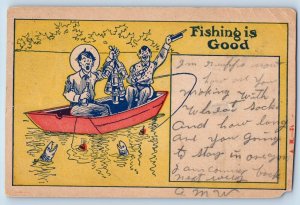 Fishing is
Good
I'm
how are You
making with
Wheat Socks
And how long
are You going
to stay in oregon
I am coming back
next
A. M. W.